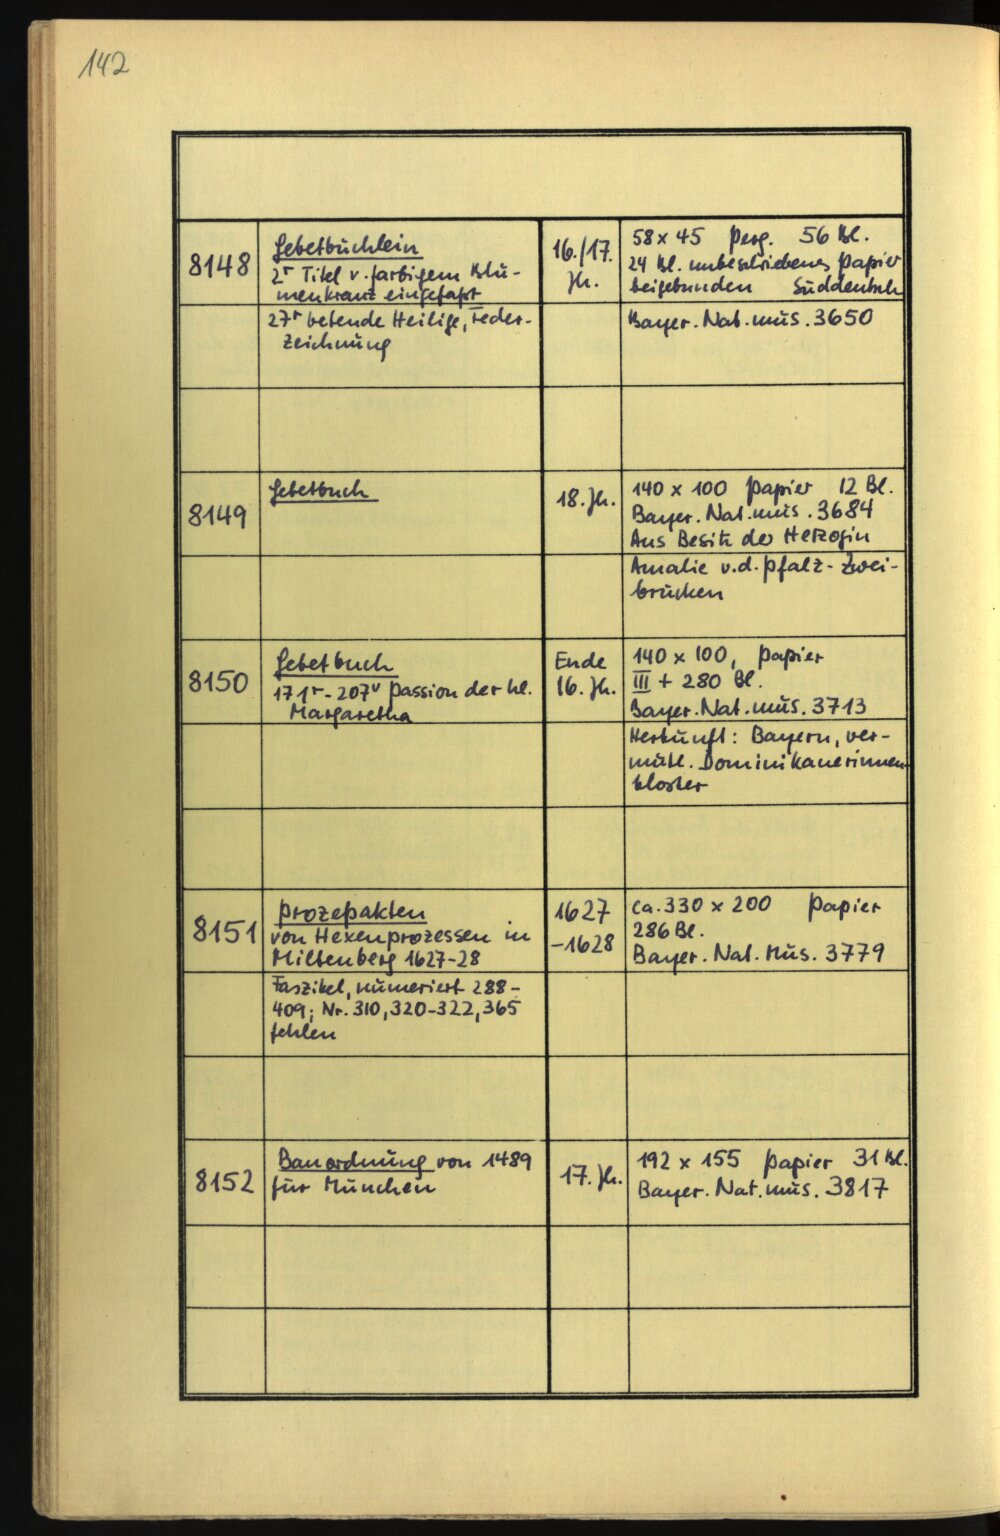 142
8148
Gebetbüchlein
2r Titel v. farbigem Blu-
menkranz eingefaßt
27r betende Heilige, Feder-
zeichnung
16./17.
Jh.
58 x 45 Perg. 56 Bl.
24 Bl. unbeschriebenes Papier
beigebunden Süddeutsch
Bayer. Nat. mus. 3650
8149
Gebetbuch
18. Jh.
140 x 100 Papier 12 Bl.
Bayer. Nat. mus. 3684
Aus Besitz der Herzogin
Amalie v. d. Pfalz-Zwei-
brücken
8150
Gebetbuch
171r-207v Passion der hl.
Margaretha
Ende
16. Jh.
140 x 100, Papier
III + 280 Bl.
Bayer. Nat. mus. 3713
Herkunft: Bayern, ver-
mutl. Dominikanerinnen-
kloster
8151
Prozeßakten
von Hexenprozessen in
Miltenberg 1627-28
Faszikel, numeriert 288-
409; Nr. 310, 320-322, 365
fehlen
1627
-1628
ca. 330 x 200 Papier
286 Bl.
Bayer. Nat. Mus. 3779
8152
Bauordnung von 1489
für München
17. Jh.
192 x 155 Papier 31 Bl.
Bayer. Nat. mus. 3817